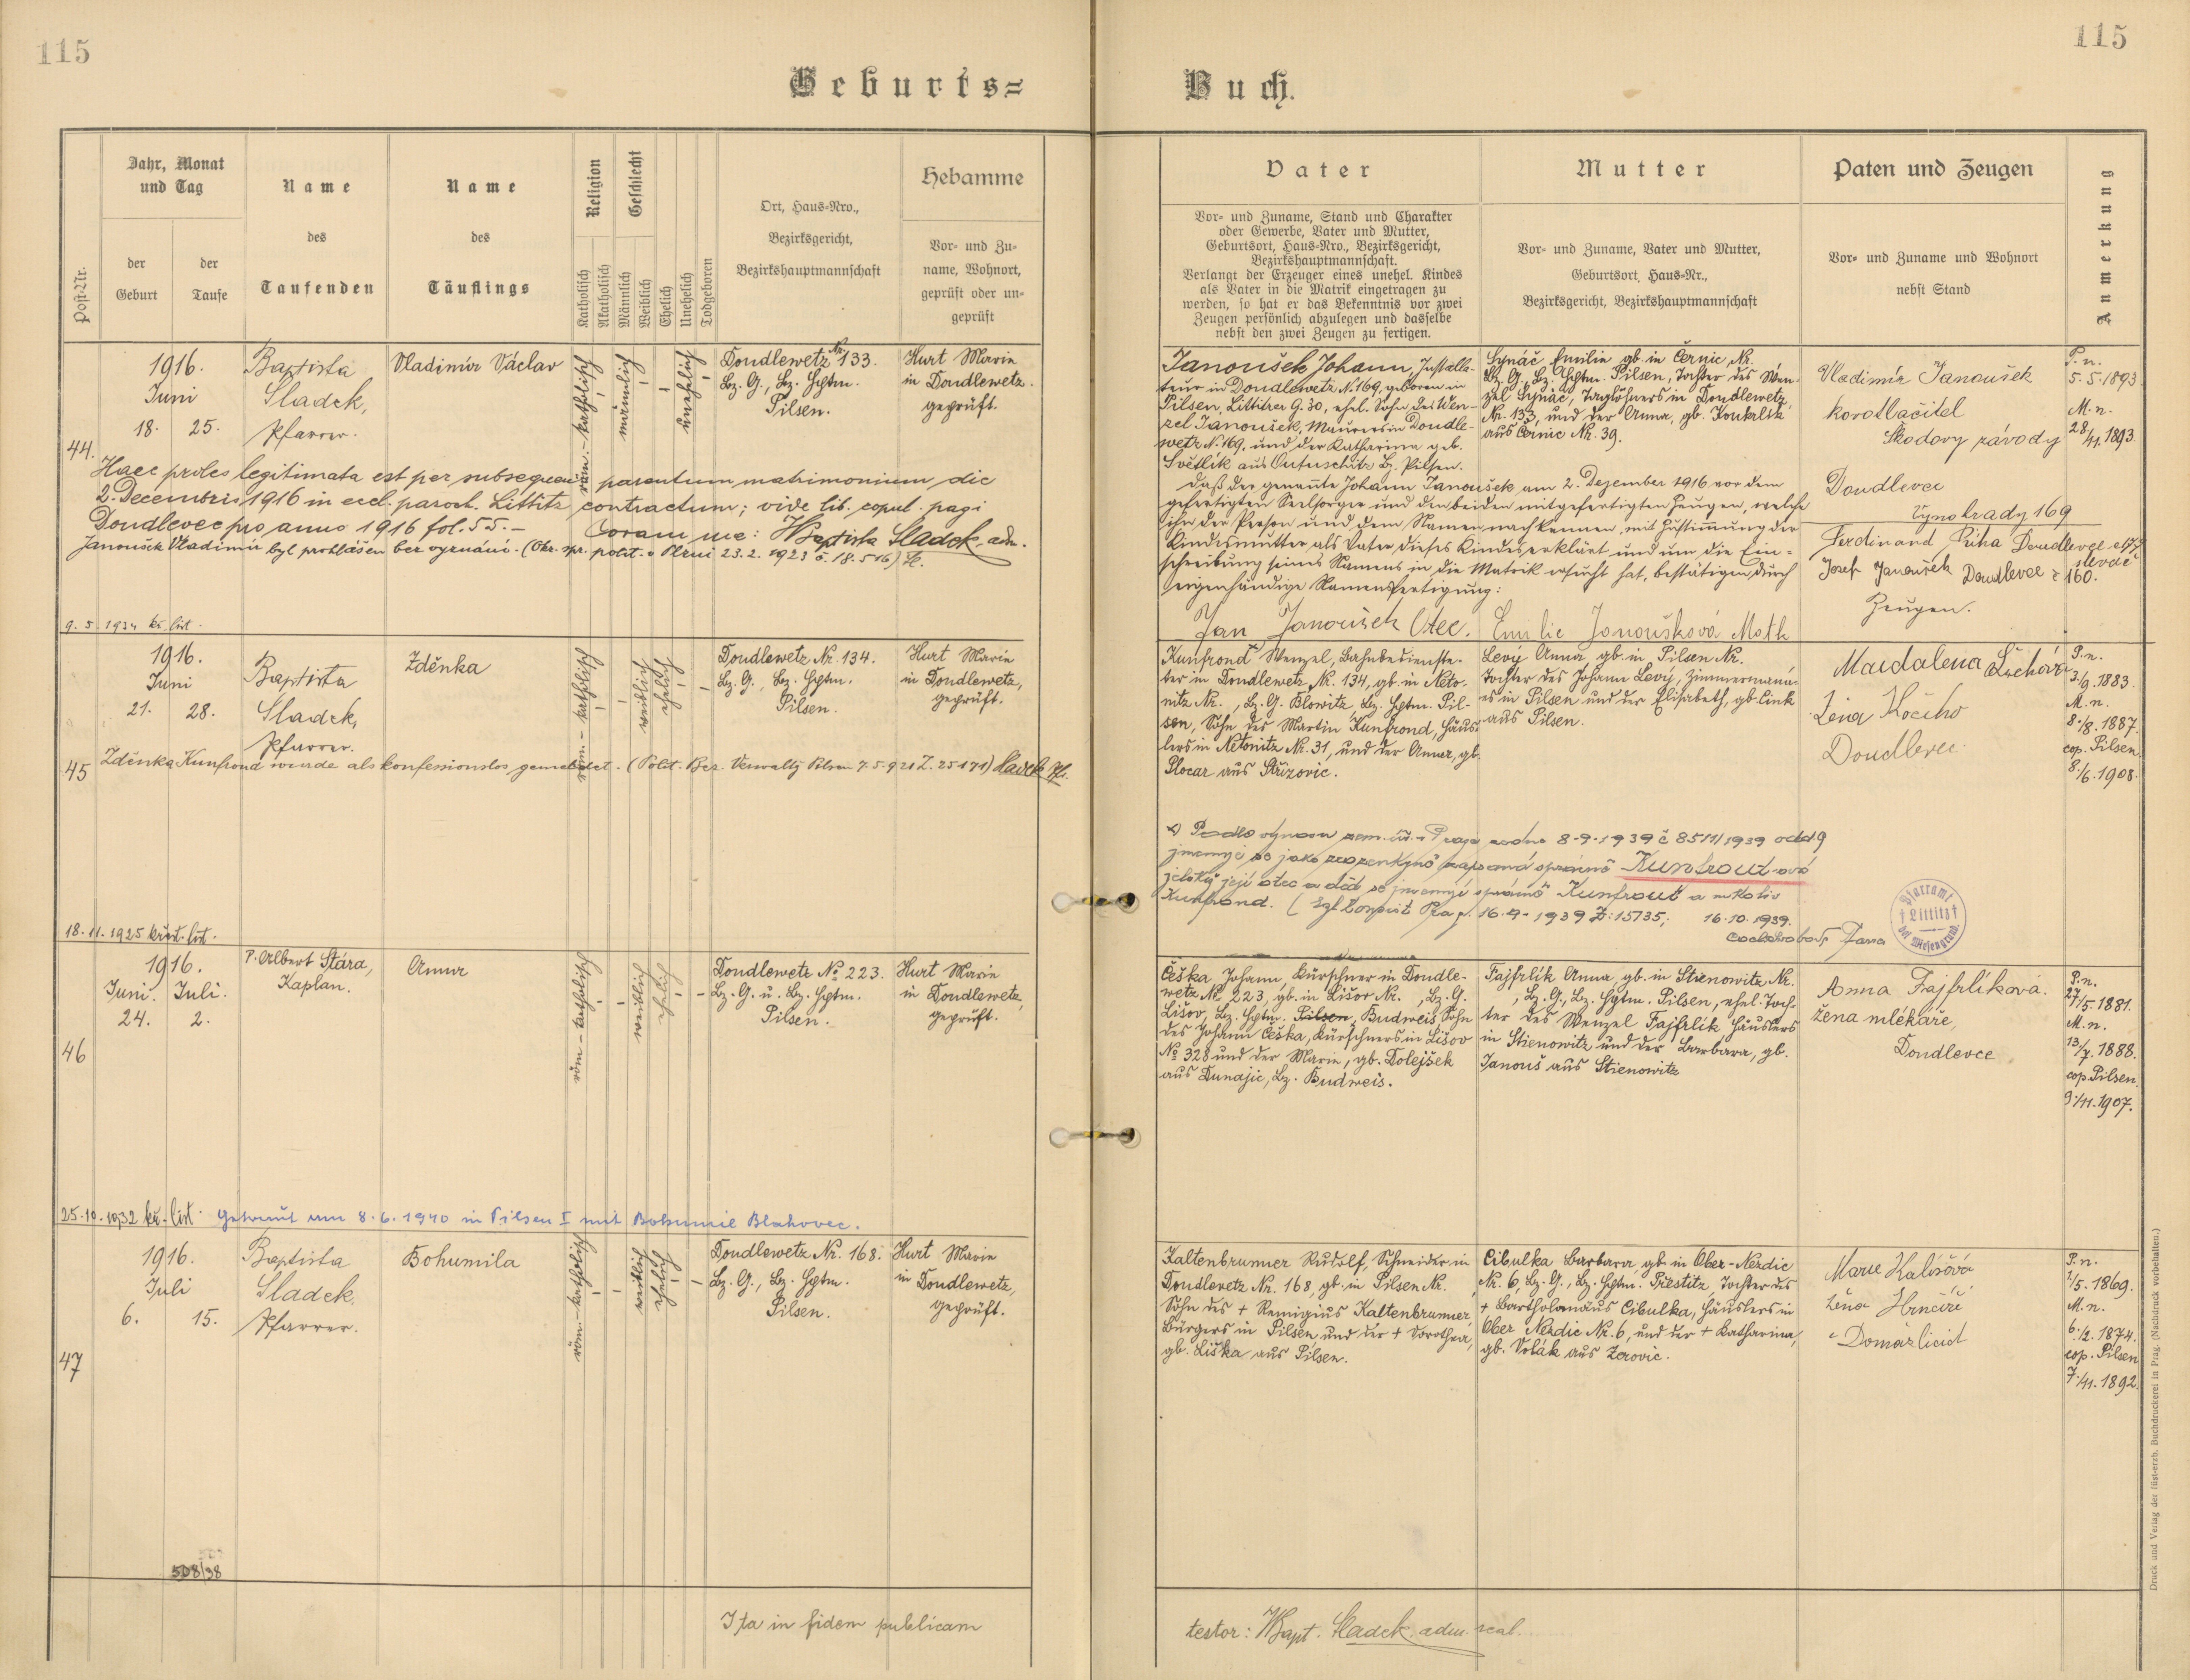 115
115
Geburts=
Buch.
Jahr, Monat
und Tag
Name
des
Taufenden
Name
des
Täuflings
Religion
Geschlecht
Hebamme
Post-Nr.
der
Geburt
der
Taufe
Katholisch
Akatholisch
Männlich
Weiblich
Ehelich
Unehelich
Todgeboren
Ort, Haus=Nro.,
Bezirksgericht,
Bezirkshauptmannschaft
Vor= und Zu=
name, Wohnort,
geprüft oder un=
geprüft
Vater
Mutter
Paten und Zeugen
Anmerkung
Vor= und Zuname, Stand und Charakter
oder Gewerbe, Vater und Mutter,
Geburtsort, Haus=Nro., Bezirksgericht,
Bezirkshauptmannschaft.
Verlangt der Erzeuger eines unehel. Kindes
als Vater in die Matrik eingetragen zu
werden, so hat er das Bekenntnis vor zwei
Zeugen persönlich abzulegen und dasselbe
nebst den zwei Zeugen zu fertigen.
Vor= und Zuname, Vater und Mutter,
Geburtsort, Haus=Nr.,
Bezirksgericht, Bezirkshauptmannschaft
Vor= und Zuname und Wohnort
nebst Stand
44.
1916.
Juni
18. 25.
Baptista
Sladek,
Pfarrer.
Vladimír Václav
röm.-katholisch
männlich
unehelich
Doudlewetz Nr. 133.
Bz. G., Bz. Hptm.
Pilsen.
Hurt Marie
in Doudlewetz.
geprüft.
Haec proles legitimata est per subsequens parentum matrimonium die
2. Decembris 1916 in eccl. paroch. Littitz contractum; vide lib. copul. pagi
Doudlevec pro anno 1916 fol. 55. – Coram me: JBaptista Sladek adm.
Janoušek Vladimír byl prohlášen bez vyznání. (Okr. spr. polit. v Plzni 23.2.1923 č. 18.516)
9.5.1934 kř. list.
Janoušek Johann, Installa-
teur in Doudlewetz N. 169, geboren in
Pilsen, Littitzer G. 30, ehel. Sohn des Wen-
zel Janoušek, Maurers in Doudle-
wetz N. 169, und der Katharina geb.
Světlík aus Bz. Pilsen.
Daß der genannte Johann Janoušek am 2. Dezember 1916 vor dem
gefertigten Seelsorger und den beiden mitgefertigten Zeugen, welche
ihn der Person und dem Namen nach kennen, mit Zustimmung der
Kindesmutter als Vater dieses Kindes erklärt und um die Ein-
schreibung seines Namens in die Matrik ersucht hat, bestätigen durch
eigenhändige Namensfertigung:
Jan Janoušek Otec. Emilie Janoušková Matk
Synáč Emilie gb. in Černic, Nr.
Bz. G., Bz. Hptm. Pilsen, Tochter des Wen-
zel Synáč, Taglöhners in Doudlewetz,
Nr. 133, und der Anna, gb. Koukolík
aus Černic Nr. 39.
Vladimír Janoušek
korotlačitel
Škodovy závody
Doudlevce
Vynohrady 169
Ferdinand Říha Doudlevce
Josef Janoušek Doudlevce č 160.
Zeugen.
P. n.
5.5.1893
M. n.
28/11.1893.
45
1916.
Juni
21. 28.
Baptista
Sladek,
Pfarrer.
Zděnka
röm.-katholisch
weiblich
ehelich
Doudlewetz Nr. 134.
Bz. G., Bz. Hptm.
Pilsen.
Hurt Marie
in Doudlewetz,
geprüft.
Zděnka Kunfrond wurde als konfessionslos gemeldet. (Polit. Bez. Verwaltg Pilsen 7.5.921 Z. 25171) Sladek Pfr.
18.11.1925 křest. list.
Kunfrond Wenzel, Bahnbedienste-
ter in Doudlewetz, Nr. 134, gb. in Neto-
nitz Nr. , Bz. G. Blowitz, Bz. Hptm. Pil-
sen, Sohn des Martin Kunfrond, Häus-
lers in Netonitz Nr. 31, und der Anna, gb.
Slocar aus Střížovic.
Levý Anna gb. in Pilsen Nr.
Tochter des Johann Levý, Zimmermann-
es in Pilsen und der Elisabeth, gb. Link
aus Pilsen.
Maidalena
žena Kočího
Doudlevce
P. n.
3./9.1883.
M. n.
8./8.1887.
cop. Pilsen
8./6.1908.
x) Podle výnosu zem. úř. v Praze ze dne 8-9-1939 č 8511/1939 odd 9
jmenuje se jako zapsaná správně Kunfrout-ová
jelikož její otec a děd se jmenují správně Kunfrout a nikoliv
Kunfrond. 16-9-1939 Z: 15735; 16.10.1939.
Pfarramt
Littitz
bei Wiesengrund
46
1916.
Juni. Juli.
24. 2.
P. Albert Stára,
Kaplan.
Anna
röm-katholisch
weiblich
ehelich
Doudlewetz No 223.
Bz. G. u. Bz. Hptm.
Pilsen.
Hurt Marie
in Doudlewetz,
geprüft.
25.10.1932 kř. list. Getraut am 8.6.1940 in Pilsen I mit Bohumil Blahovec.
Češka Johann, Kürschner in Doudle-
wetz No 223, gb. in Lišov Nr. , Bz. G.
Lišov, Bz. Hptm. Pilsen, Budweis, Sohn
des Johann Češka, Kürschners in Lišov
No 328 und der Marie, gb. Dolejšek
aus Dunajic, Bz. Budweis.
Fajfrlík Anna gb. in Stienowitz Nr.
, Bz. G., Bz. Hptm. Pilsen, ehel. Toch-
ter des Wenzel Fajfrlík Häuslers
in Stienowitz und der Barbara, gb.
Janouš aus Stienowitz
Anna Fajfrlíková.
žena mlékaře,
Doudlevce
P. n.
27/5.1881.
M. n.
13/7.1888.
cop Pilsen.
9./11.1907.
47
1916.
Juli
6. 15.
Baptista
Sladek,
Pfarrer.
Bohumila
röm.-katholisch
weiblich
ehelich
Doudlewetz Nr. 168.
Bz. G., Bz. Hptm.
Pilsen.
Hurt Marie
in Doudlewetz,
geprüft.
508/38
Kaltenbrunner Rudolf, Schneider in
Doudlewetz Nr. 168, gb. in Pilsen Nr. ,
Sohn des + Remigius Kaltenbrunner,
Bürgers in Pilsen und der + Dorothea,
gb. Liška aus Pilsen.
Cibulka Barbara gb. in Ober-Nezdic
Nr. 6, Bz. G., Bz. Hptm. Přestitz, Tochter des
+ Bartholomäus Cibulka, Häuslers in
Ober Nezdic Nr. 6, und der + Katharina,
gb. Volák aus Zerovic.
Marie Halířová
žena Hrnčíře
v Domažlicích
P. n.
1/5.1869.
M. n.
6./2.1874.
cop. Pilsen
7./11.1892.
Ita in fidem publicam
testor: JBapt. Sladek. adm.
Druck und Verlag der fürst-erzb. Buchdruckerei in Prag. (Nachdruck vorbehalten.)